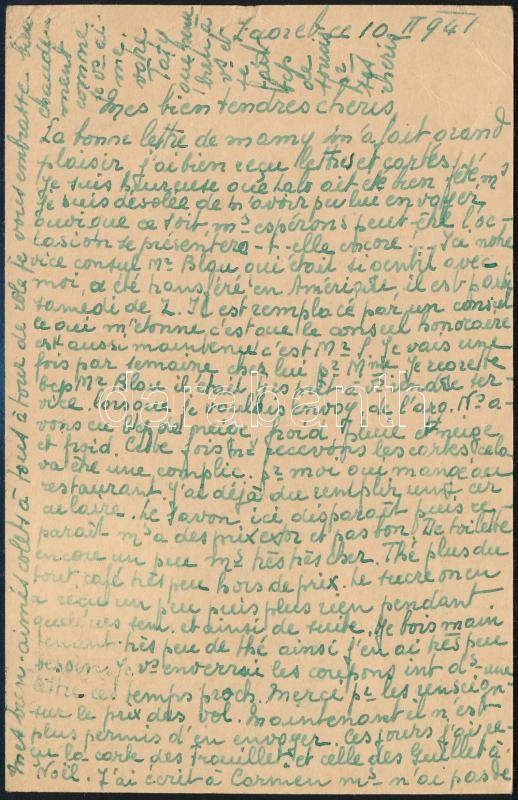 Zagreb, ce 10 II 1941
Mes bien tendres chéris
La bonne lettre de mamy m'a fait grand
plaisir j'ai bien reçu lettres et cartes.
Je suis heureuse que ait été bien fêté, ms
Je suis désolée de n'avoir pu lui envoyer
quoique ce soit ms espérons peut-être l'oc-
casion se présentera-t-elle encore... Ici notre
vice consul Mr Blau qui était si gentil avec
moi, a été transféré en Amérique, il est parti
samedi de Z. Il est remplacé par un consul
ce qui m'étonne c'est que le consul honoraire
est aussi maintenu c'est Mr S. Je vais une
fois par semaine chez lui pr Mme. Je regrette
bcp Mr Blau il était tjrs prêt à rendre ser-
vice lorsque je voulais envoy de l'arg. N. a-
vons eu neige froid pluie et neige
et froid. Cette fois ns recevons les cartes cela
va être une complic. Pr moi qui mange au
restaurant. J'ai déjà dû remplir une cir
culaire. Le savon ici disparaît puis re-
paraît ms à des prix exor et pas bon. De toilette
encore un peu ms très très cher. Thé plus du
tout, café très peu hors de prix. Le sucre on en
a reçu un peu puis plus rien pendant
quelques sem. et ainsi de suite. Je bois main
tenant très peu de thé ainsi j'en ai très peu
besoin. Je vs enverrai les coupons int ds une
lettre ces temps proch. Merci pr les renseign-
sur le prix des vol. Maintenant il n'est
plus permis d'en envoyer. Ces jours j'ai re-
çu la carte des Trouillet et celle des Guillet à
Noël. J'ai écrit à Carmen ms n'ai pas de
Mes biens-aimés colets à tous à tour de role je vous embrasse bien
chaude
mant
comme
je vs ai
me.
votre
bien à
vs et
bcp
de
pr
chéris
darabanth